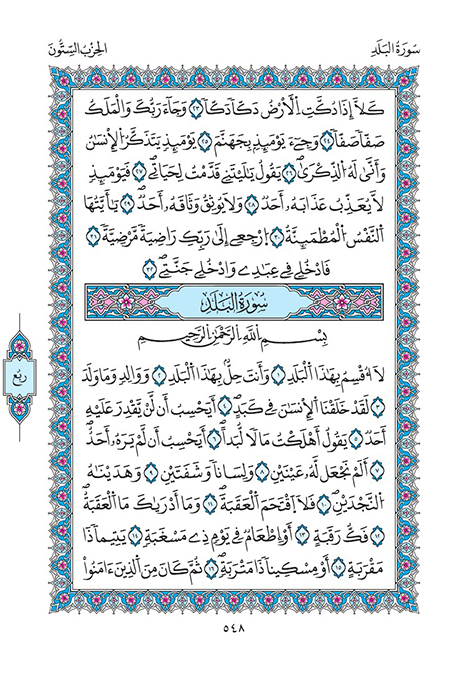 سُورَةُ الْبَلَدِ
الحِزْبُ السِّتُّونَ
كَلَّا إِذَا دُكَّتِ اِلْأَرْضُ دَكّاً دَكّاً ٢٣ وَجَآءَ رَبُّكَ وَالْمَلَكُ
صَفّاً صَفّاً ٢٤ وَجِےٓءَ يَوْمَئِذِۢ بِجَهَنَّمَ ٢٥ يَوْمَئِذٖ يَتَذَكَّرُ اُلْإِنسَٰنُ
وَأَنّ۪ىٰ لَهُ اُلذِّكْر۪ىٰ ٢٦ يَقُولُ يَٰلَيْتَنِے قَدَّمْتُ لِحَيَاتِے ٢٧ فَيَوْمَئِذٖ
لَّا يُعَذِّبُ عَذَابَهُۥٓ أَحَدٞ ٢٨ وَلَا يُوثِقُ وَثَاقَهُۥٓ أَحَدٞ ٢٩ يَٰٓأَيَّتُهَا
اَلنَّفْسُ اُلْمُطْمَئِنَّةُ ٣٠ اُ۪رْجِعِےٓ إِلَىٰ رَبِّكِ رَاضِيَةٗ مَّرْضِيَّةٗ ٣١
فَادْخُلِے فِے عِبَٰدِے وَادْخُلِے جَنَّتِے ٣٢
سُورَةُ الْبَلَدِ
بِسْمِ اِللَّهِ اِلرَّحْمَٰنِ اِلرَّحِيمِ
لَآ أُقْسِمُ بِهَٰذَا اَلْبَلَدِ ١ وَأَنتَ حِلُّۢ بِهَٰذَا اَلْبَلَدِ ٢ وَوَالِدٖ وَمَا وَلَدَ
٣ لَقَدْ خَلَقْنَا اَلْإِنسَٰنَ فِے كَبَدٍ ٤ أَيَحْسِبُ أَن لَّنْ يَّقْدِرَ عَلَيْهِ
أَحَدٞ ٥ يَقُولُ أَهْلَكْتُ مَالاٗ لُّبَداً ٦ أَيَحْسِبُ أَن لَّمْ يَرَهُۥٓ أَحَدٌ
٧ أَلَمْ نَجْعَل لَّهُۥ عَيْنَيْنِ ٨ وَلِسَاناٗ وَشَفَتَيْنِ ٩ وَهَدَيْنَٰهُ
اُلنَّجْدَيْنِ ١٠ فَلَا اَ۪قْتَحَمَ اَلْعَقَبَةَ ١١ وَمَآ أَدْر۪ىٰكَ مَا اَلْعَقَبَةُ
١٢ فَكُّ رَقَبَةٍ ١٣ أَوْ إِطْعَٰمٞ فِے يَوْمٖ ذِے مَسْغَبَةٖ ١٤ يَتِيماٗ ذَا
مَقْرَبَةٍ ١٥ أَوْ مِسْكِيناٗ ذَا مَتْرَبَةٖ ١٦ ثُمَّ كَانَ مِنَ اَلذِينَ ءَامَنُواْ
ربع
٥٤٨